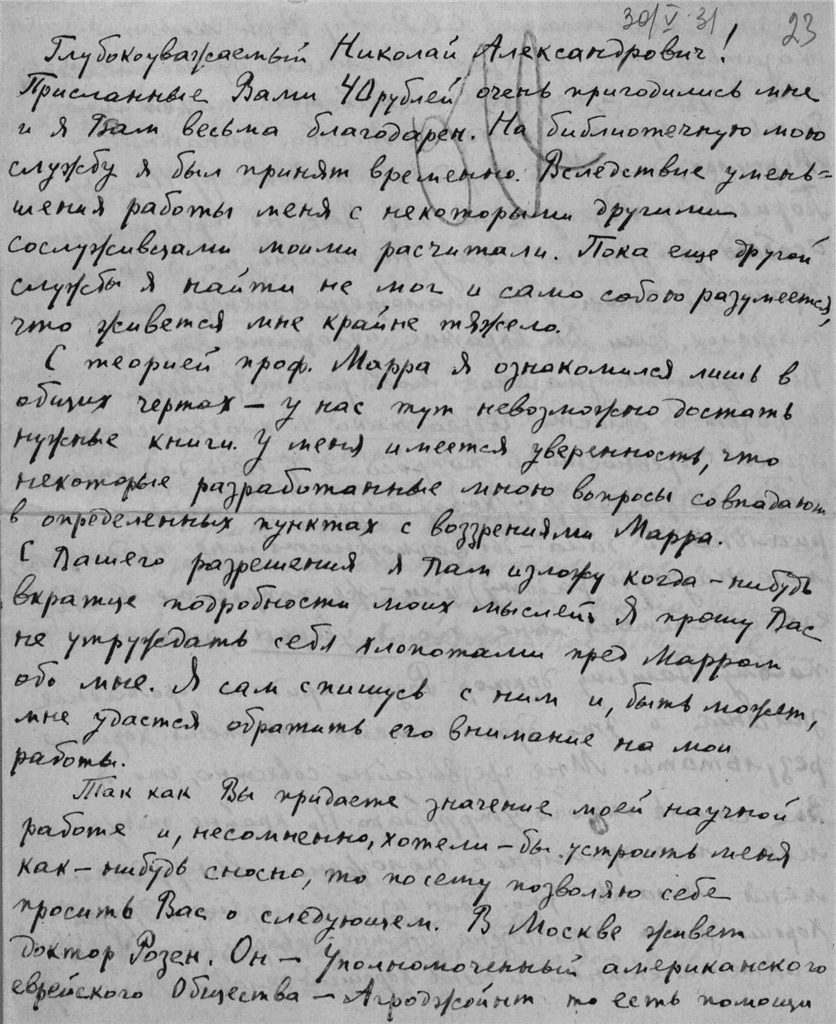 30/V 31
23
Глубокоуважаемый Николай Александрович!
Присланные Вами 40 рублей очень пригодились мне
и я Вам весьма благодарен. На библиотечную мою
службу я был принят временно. Вследствие умень=
шения работы меня с некоторыми другими
сослуживцами моими расчитали. Пока еще другой
службы я найти не мог и само собою разумеется,
что живется мне крайне тяжело.
С теорией проф. Марра я ознакомился лишь в
общих чертах — у нас тут невозможно достать
нужные книги. У меня имеется уверенность, что
некоторые разработанные мною вопросы совпадают
в определенных пунктах с воззрениями Марра.
С Вашего разрешения я Вам изложу когда-нибудь
вкратце подробности моих мыслей. Я прошу Вас
не утруждать себя хлопотами пред Марром
обо мне. Я сам спишусь с ним и, быть может,
мне удастся обратить его внимание на мои
работы.
Так как Вы придаете значение моей научной
работе и, несомненно, хотели-бы устроить меня
как-нибудь сносно, то посему позволяю себе
просить Вас о следующем. В Москве живет
доктор Розен. Он — Уполномоченный американского
еврейского Общества — Агроджойнт то есть помощи